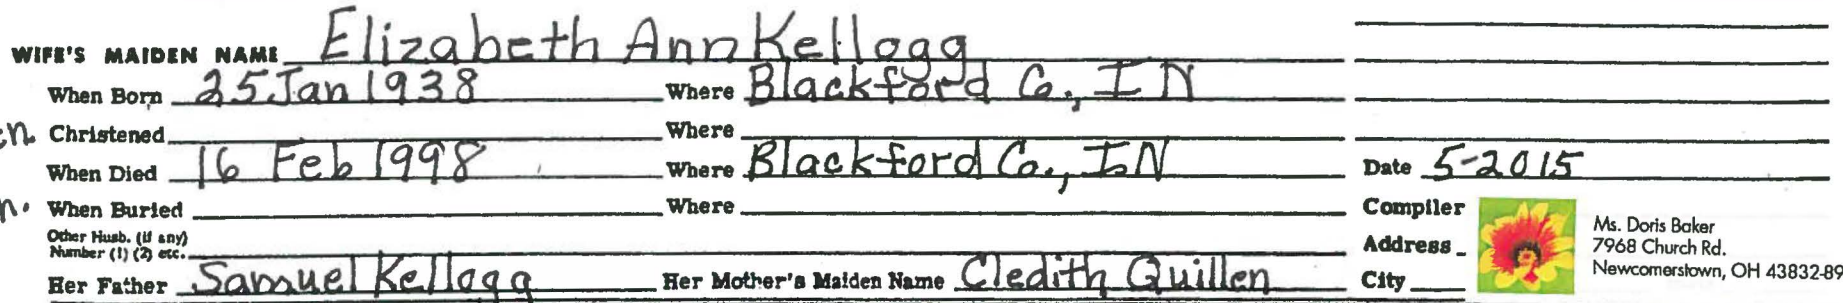 WIFE'S MAIDEN NAME Elizabeth Ann Kellogg
When Born 25 Jan 1938 Where Blackford Co., IN
Christened Where
When Died 16 Feb 1998 Where Blackford Co., IN Date 5-2015
When Buried Where Compiler
Other Husb. (if any)
Number (1) (2) etc. Address
Her Father Samuel Kellogg Her Mother's Maiden Name Cledith Quillen City
Ms. Doris Baker
7968 Church Rd.
Newcomerstown, OH 43832-89